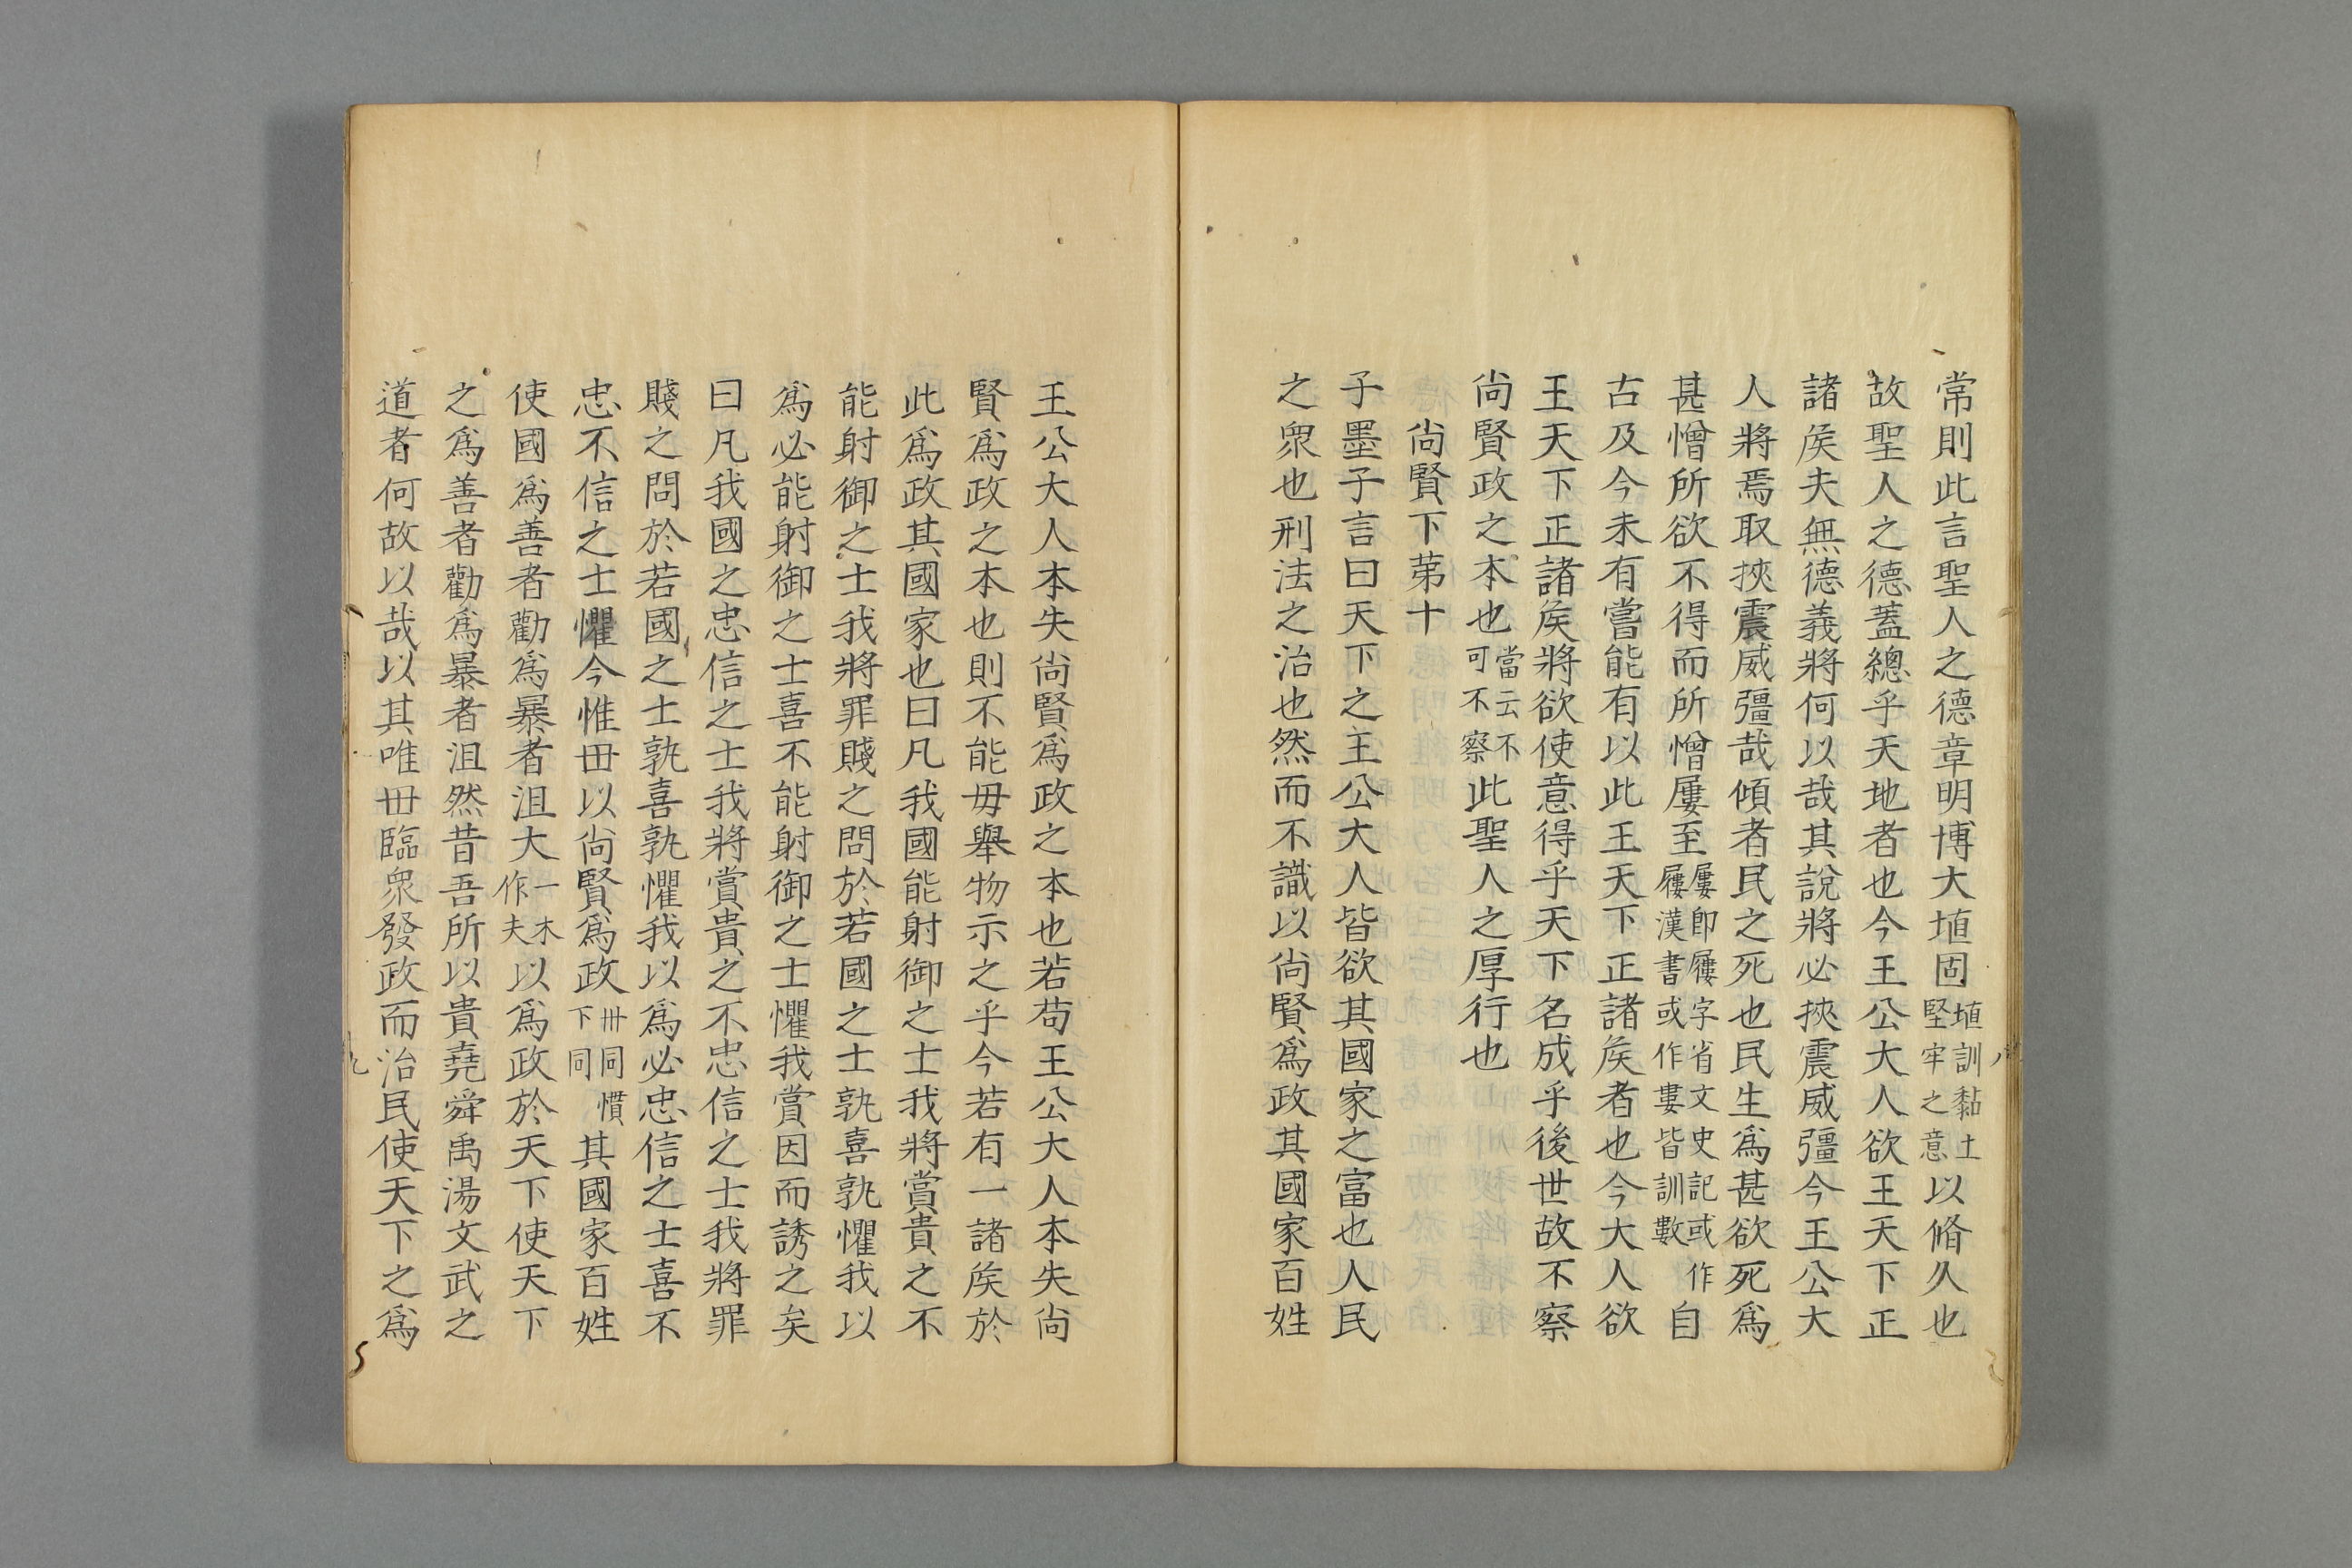 常則此言聖人之德章明博大埴固埴訓黏土堅牢之意以脩久也
故聖人之德蓋總乎天地者也今王公大人欲王天下正
諸矦夫無德義將何以哉其說將必挾震威彊今王公大
人將焉取挾震威彊哉傾者民之死也民生爲甚欲死爲
甚憎所欲不得而所憎屢至屢卽屨字省文史記或作屨漢書或作婁皆訓數自
古及今未有嘗能有以此王天下正諸矦者也今大人欲
王天下正諸矦將欲使意得乎天下名成乎後世故不察
尙賢政之本也當云不可不察此聖人之厚行也
尙賢下苐十
子墨子言曰天下之王公大人皆欲其國家之富也人民
之衆也刑法之治也然而不識以尙賢爲政其國家百姓
王公大人本失尙賢爲政之本也若苟王公大人本失尙
賢爲政之本也則不能毋舉物示之乎今若有一諸矦於
此爲政其國家也曰凡我國能射御之士我將賞貴之不
能射御之士我將罪賤之問於若國之士孰喜孰懼我以
爲必能射御之士喜不能射御之士懼我賞因而誘之矣
曰凡我國之忠信之士我將賞貴之不忠信之士我將罪
賤之問於若國之士孰喜孰懼我以爲必忠信之士喜不
忠不信之士懼今惟毌以尙賢爲政毌同慣下同其國家百姓
使國爲善者勸爲暴者沮大一本作夫以爲政於天下使天下
之爲善者勸爲暴者沮然昔吾所以貴堯舜禹湯文武之
道者何故以哉以其唯毌臨衆發政而治民使天下之爲